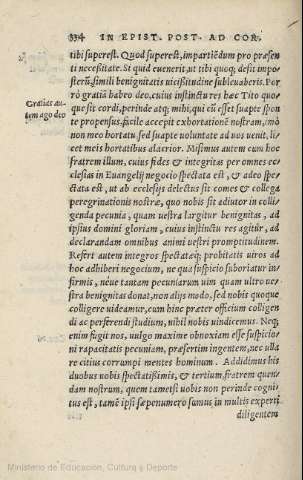 334 IN EPIST. POST. AD COR.
tibi superest. Quod superest, impartiēdum pro præsen
ti necessitate. Et si quid euenerit, ut tibi quoq; desit impo
sterũ, simili benignitatis uicissitudine subleuaberis. Por
rò gratiā habeo deo, cuius instinctu res hæc Tito quo
Gratias au-
que sit cordi, perinde atq; mihi, qui cũ esset suapte spon
tem ago deo
te propensus, facile accepit exhortationē nostram, mò
non meo hortatu, sed suapte uoluntate ad uos uenit, li-
cet meis hortatibus alacrior. Misimus autem cum hoc
fratrem illum, cuius fides & integritas per omnes ec-
clesias in Euangelij negocio spectata est, & adeo spe-
ctata est, ut ab ecclesijs delectus sit comes & collega
peregrinationis nostræ, quo nobis sit adiutor in collι-
genda pecunia, quam uestra largitur benignitas, ad
ipsius domini gloriam, cuius instinctu res agitur, ad
declarandam omnibus animi uestri promptitudinem.
Refert autem integros spectatæq; probitatis uiros ad
hoc adhiberi negocium, ne qua suspicio suboriatur in-
firmis, néue tantam pecuniarum uim quam ultro ue-
stra benignitas donat, non alijs modo, sed nobis quoque
colligere uideamur, cum hinc præter officium colligen
di ac perferendi studium, nihil nobis uindicemus. Neq;
enim fugit nos, uulgo maxime obnoxiam esse suspicio-
ni rapacitatis pecuniam, præsertim ingentem, nec ulla
re citius corrumpi mentes hominum. Addidimus his
duobus uobis spectatißimis, & tertium, fratrem quen-
dam nostrum, quem tametsi uobis non perinde cogni-
tus est, tamē ipsi sæpenumero sumus in multis experti
diligentem
Ministerio de Educación, Cultura y Deporte